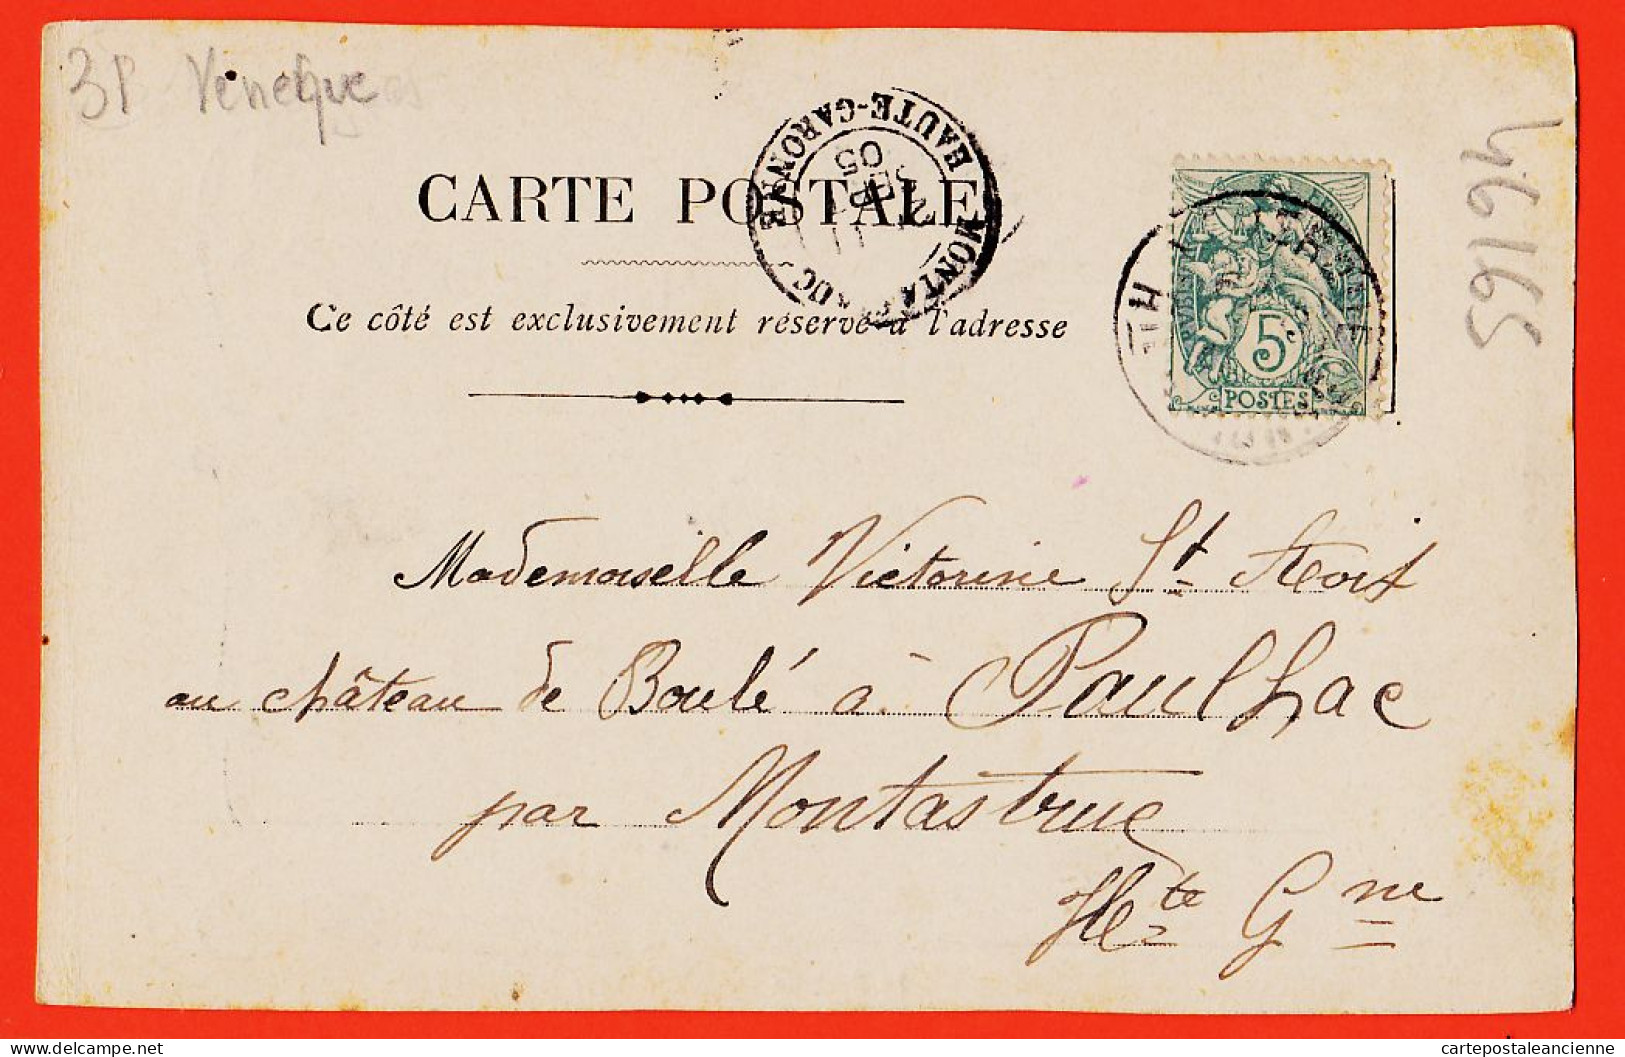 3P Veneque
46165
CARTE POSTALE
Ce côté est exclusivement réservé à l'adresse
HAUTE-GARONNE
05
5c
POSTES
Mademoiselle Victorine St
au château de Boulé à Paulhac
par Montastruc
Hte Gne
cartepostaleancienne